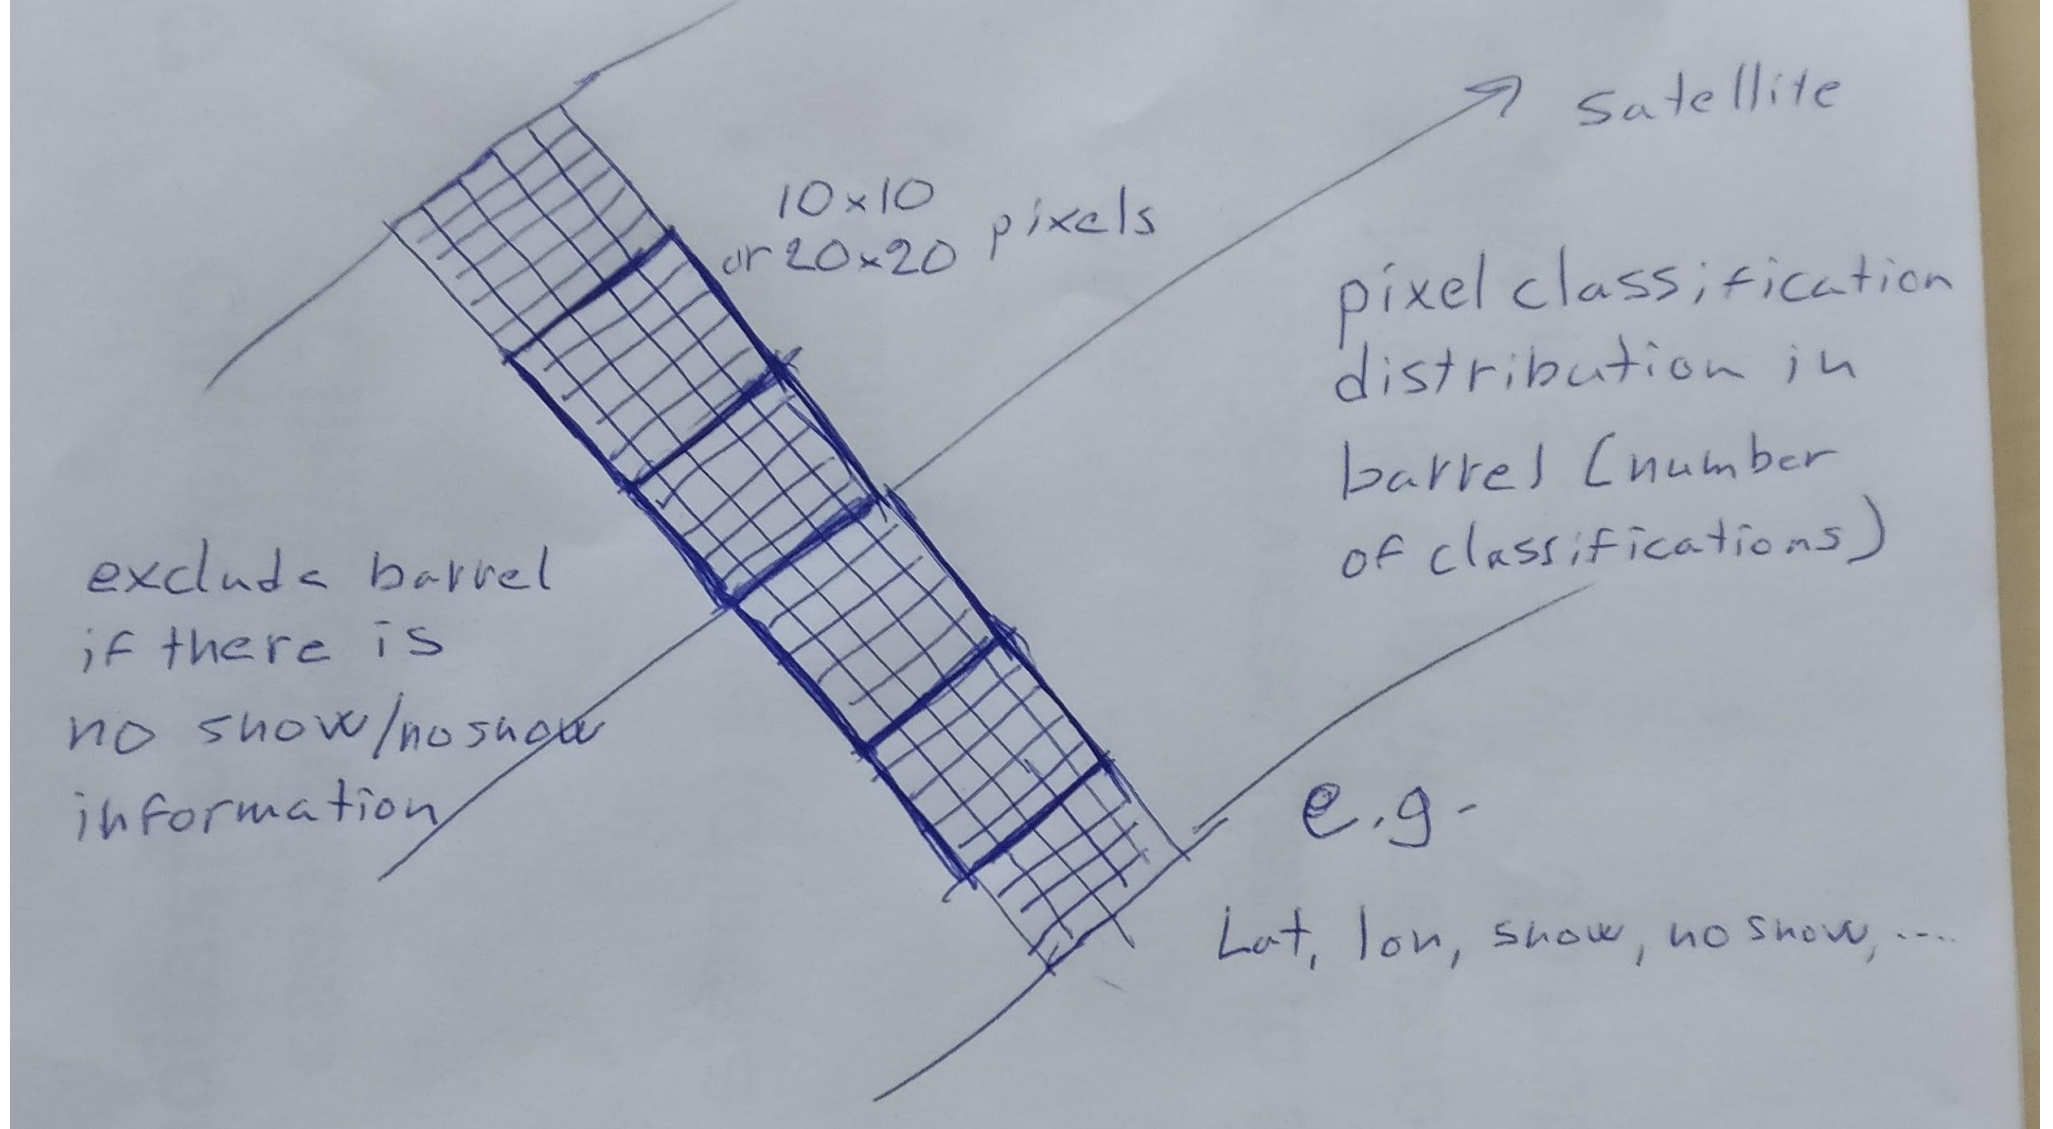 satellite
10x10
or 20x20 pixels
pixel classification
distribution in
barrel (number
of classifications)
exclude barrel
if there is
no snow/no snow
information
e.g.
Lat, lon, snow, no snow, ....